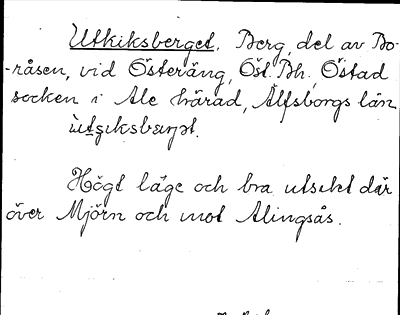 Utkiksberget. Berg, del av Bo-
-råsen, vid Österäng, Öst. Bh., Östad
socken i Ale härad, Älfsborgs län
Högt läge och bra utsikt där
över Mjörn och mot Alingsås.